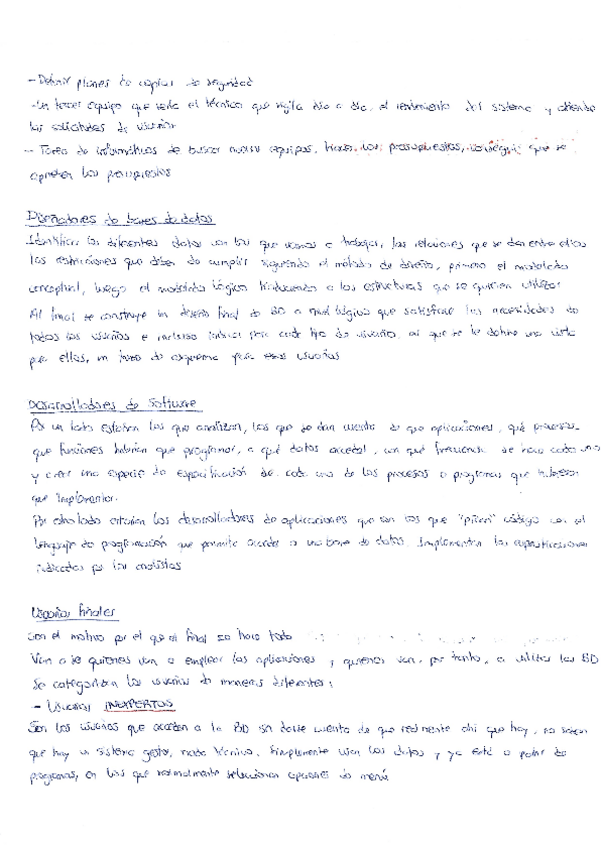 - Definir planes de copias de seguridad
- Un tercer equipo que sería el técnico que vigila día a día, el rendimiento del sistema y atiende
las solicitudes de usuarios
- Tarea de informáticos de buscar nuevos equipos, hacer los presupuestos, conseguir que se
aprueben los presupuestos
Diseñadores de bases de datos
Identifican los diferentes datos con los que vamos a trabajar, las relaciones que se dan entre ellos
las restricciones que deben de cumplir siguiendo el método de diseño, primero el modelado
conceptual, luego el modelado lógico traduciendo a las estructuras que se quieran utilizar
Al final se construye un diseño final de BD a nivel lógico que satisface las necesidades de
todos los usuarios e incluso para cada tipo de usuario, al que se le define una vista
para ellos, un trozo de esquema para esos usuarios
Desarrolladores de Software
Por un lado estarían los que analizan, los que se dan cuenta de que aplicaciones, qué procesos,
que funciones habrían que programar, a qué datos acceden, con qué frecuencia se hace cada una
y crear una especie de especificación de cada uno de los procesos o programas que hubiera
que implementar.
Por otro lado estarían los desarrolladores de aplicaciones que son los que "pican" código con el
lenguaje de programación que permite acceder a una base de datos. Implementan las especificaciones
indicadas por los analistas
Usuarios finales
Son el motivo por el que al final se hace todo
Van a ser quienes van a emplear las aplicaciones y quienes van, por tanto, a utilizar las BD
Se categorizan los usuarios de maneras diferentes:
- Usuarios INEXPERTOS
Son los usuarios que acceden a la BD sin darse cuenta de que realmente ahí que hay, no saben
que hay un sistema gestor, nada técnico. Simplemente usan los datos y ya está a partir de
programas, en los que normalmente seleccionan opciones de menú